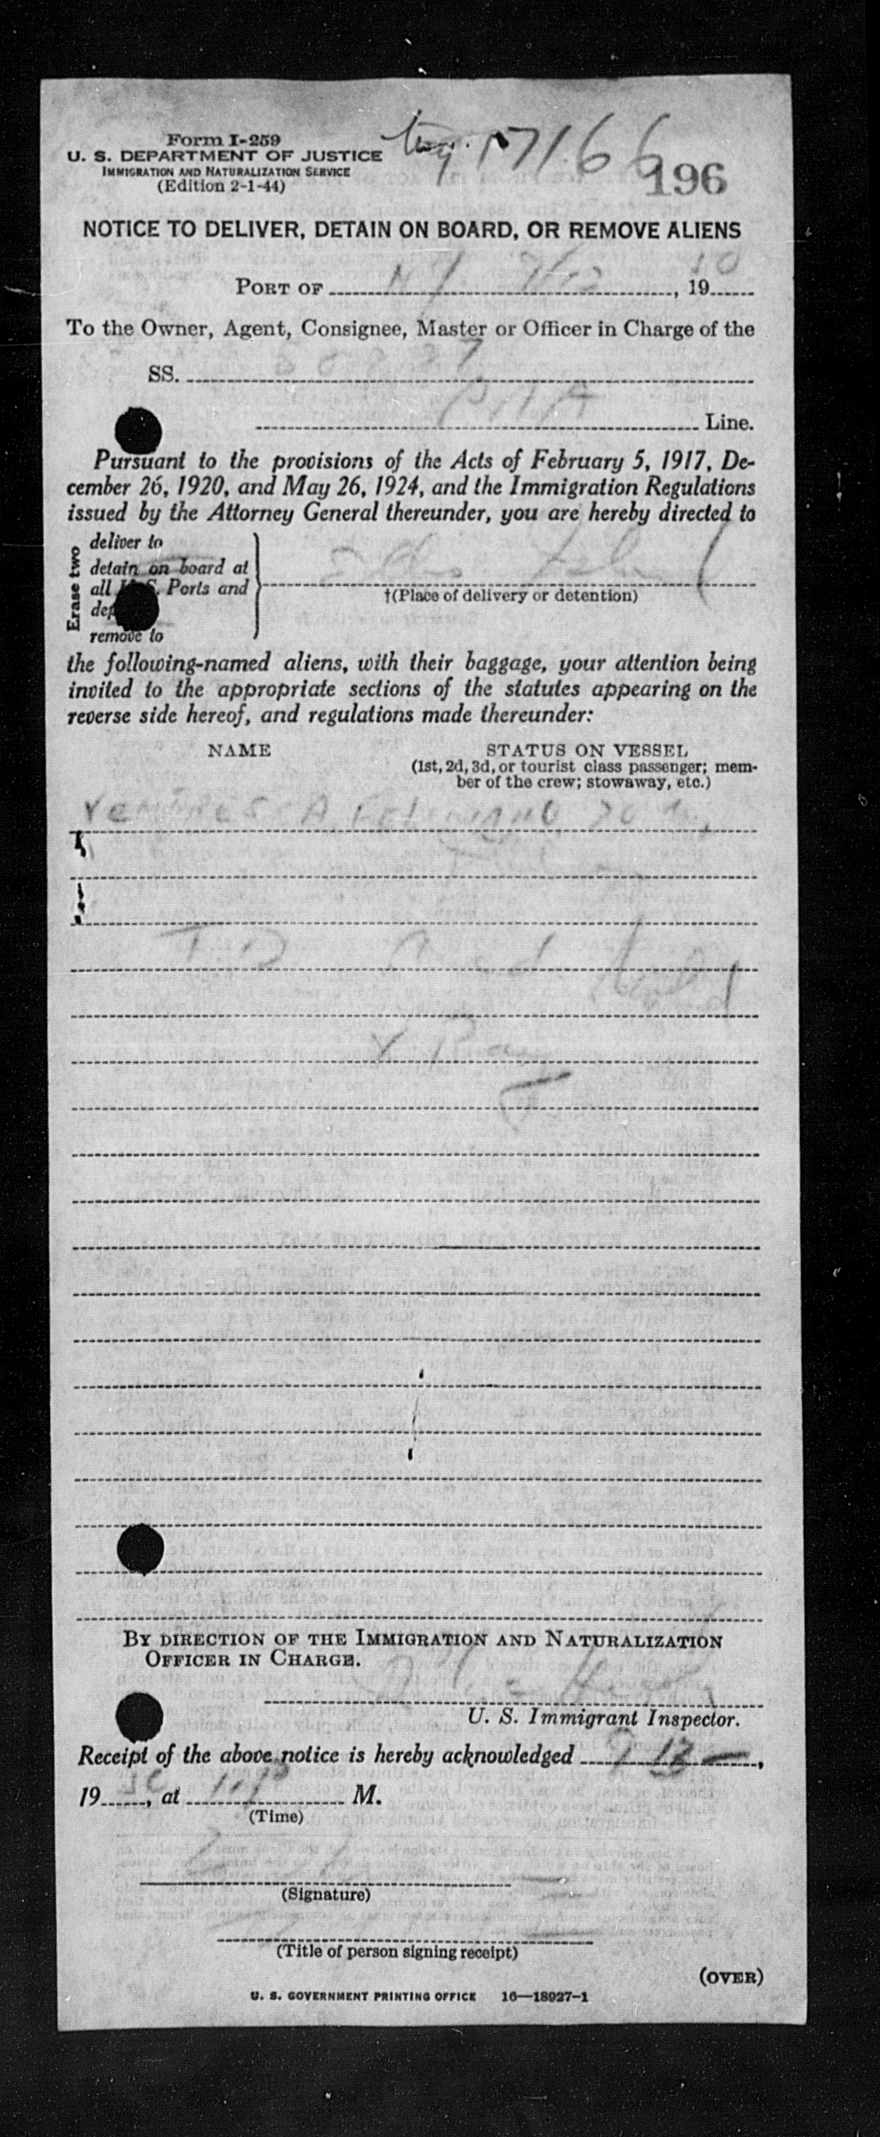 Form I-259
U. S. DEPARTMENT OF JUSTICE
IMMIGRATION AND NATURALIZATION SERVICE
(Edition 2-1-44)
17166
196
NOTICE TO DELIVER, DETAIN ON BOARD, OR REMOVE ALIENS
PORT OF NY , 19 50
To the Owner, Agent, Consignee, Master or Officer in Charge of the
SS.
PAA Line.
Pursuant to the provisions of the Acts of February 5, 1917, De-
cember 26, 1920, and May 26, 1924, and the Immigration Regulations
issued by the Attorney General thereunder, you are hereby directed to
Erase two
deliver to
detain on board at
all U.S. Ports and
remove to
†(Place of delivery or detention)
the following-named aliens, with their baggage, your attention being
invited to the appropriate sections of the statutes appearing on the
reverse side hereof, and regulations made thereunder:
NAME
STATUS ON VESSEL
(1st, 2d, 3d, or tourist class passenger; mem-
ber of the crew; stowaway, etc.)
T.D. and
X Ray
BY DIRECTION OF THE IMMIGRATION AND NATURALIZATION
OFFICER IN CHARGE.
U. S. Immigrant Inspector.
Receipt of the above notice is hereby acknowledged ,
19 50, at M.
(Time)
(Signature)
(Title of person signing receipt)
(OVER)
U. S. GOVERNMENT PRINTING OFFICE 16—18927-1